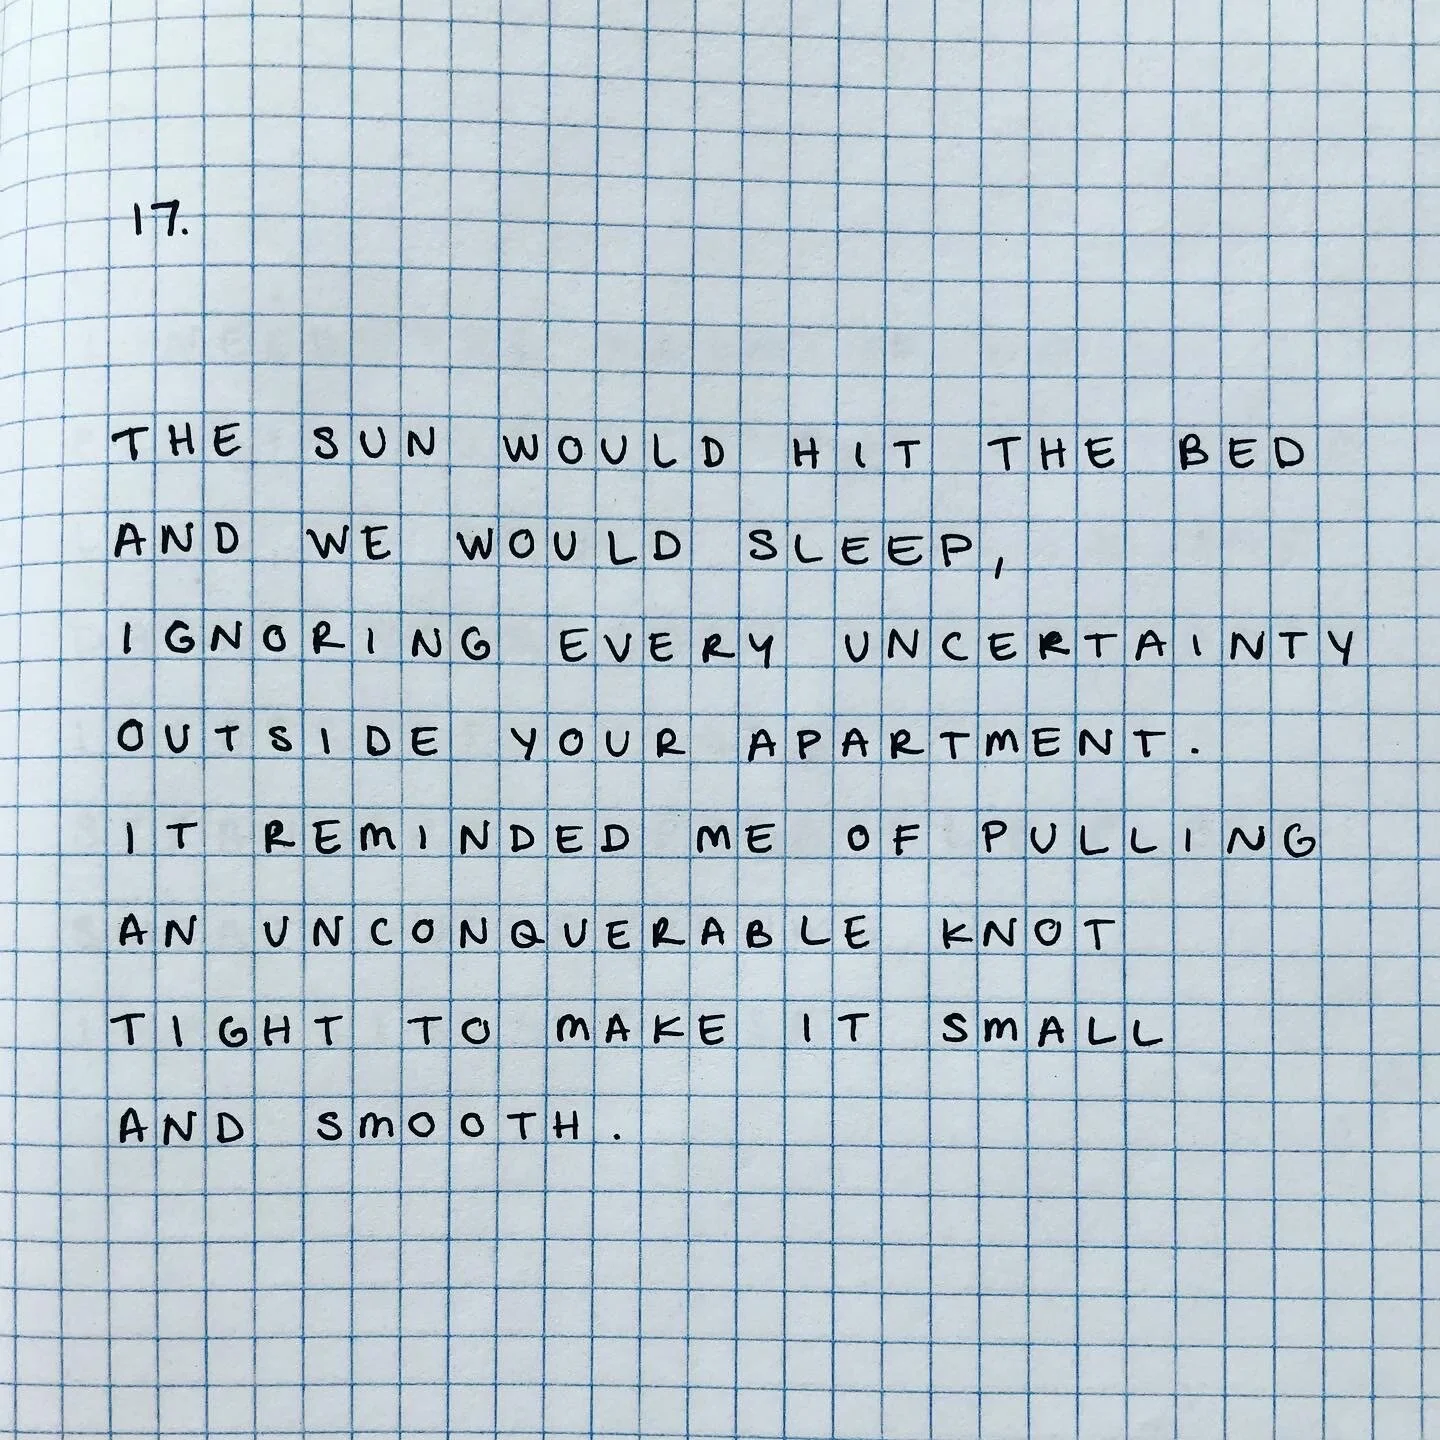 17.
THE SUN WOULD HIT THE BED
AND WE WOULD SLEEP,
IGNORING EVERY UNCERTAINTY
OUTSIDE YOUR APARTMENT.
IT REMINDED ME OF PULLING
AN UNCONQUERABLE KNOT
TIGHT TO MAKE IT SMALL
AND SMOOTH.